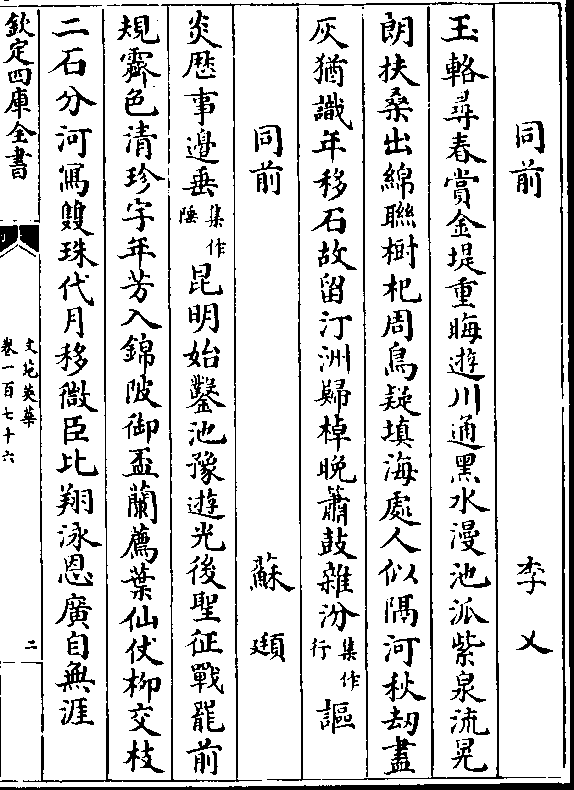 同前　李乂
玉輅尋春賞金堤重晦遊川通黑水漫池派紫泉流晃
朗扶桑出綿聯樹杞周鳥疑填海處人似隔河秋劫盡
灰猶識年移石故留汀洲歸棹晚簫鼓雜汾集作行謳
同前　蘇頲
炎歴事邊垂集作陲昆明始鑿池豫遊光後聖征戰罷前
規霽色清珍宇年芳入錦陂御盃蘭薦葉仙仗柳交枝
二石分河冩雙珠代月移微臣比翔泳恩廣自無涯
欽定四庫全書
文苑英華
卷一百七十六
二